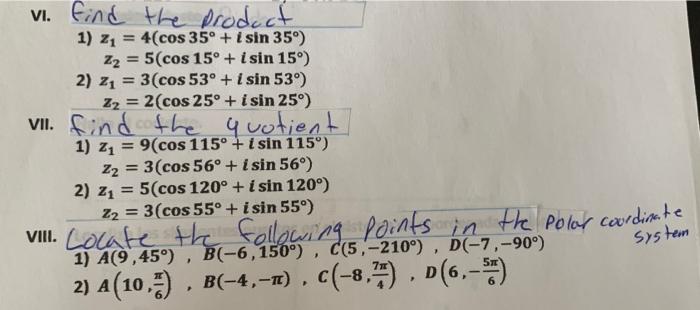 VI. find the product
1) z₁ = 4(cos 35° + i sin 35°)
z₂ = 5(cos 15° + i sin 15°)
2) z₁ = 3(cos 53° + i sin 53°)
z₂ = 2(cos 25° + i sin 25°)
VII. find the quotient
1) z₁ = 9(cos 115° + i sin 115°)
z₂ = 3(cos 56° + i sin 56°)
2) z₁ = 5(cos 120° + i sin 120°)
z₂ = 3(cos 55° + i sin 55°)
VIII. Locate the following points in the polar coordinate system
1) A(9, 45°) , B(−6, 150°) , C(5, −210°) , D(−7, −90°)
2) A(10, π/6) , B(−4, −π) , C(−8, 7π/4) , D(6, −5π/6)